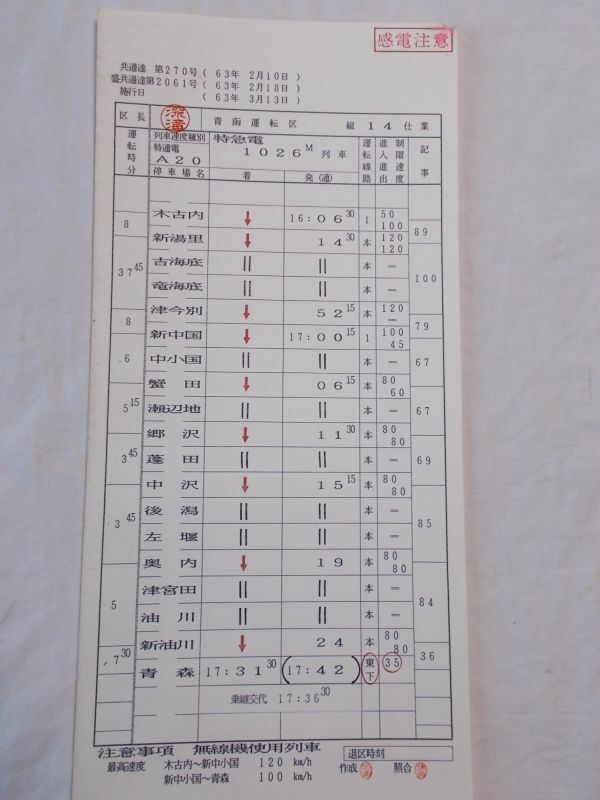 感電注意
共通達 第270号 ( 63年 2月10日 )
盛共通達第2061号 ( 63年 2月18日 )
施行日 ( 63年 3月13日 )
区長 深滝 青函運転区 組 14 仕業
運転時分 列車速度種別 特急電 運転線路 制限速度 進入進出 記事
特通電 A20 1026M 列車
停車場名 着 発(通)
木古内 ↓ 16:06 30 1 50 100
8 89
新湯里 ↓ 14 30 本 120 120
吉海底 || || 本 ―
37 45 100
竜海底 || || 本 ―
津今別 ↓ 52 15 本 120 ―
8 79
新中国 ↓ 17:00 15 1 100 45
6 67
中小国 || || 本 ―
蟹田 ↓ 06 15 本 80 60
5 15 67
瀬辺地 || || 本 ―
郷沢 ↓ 11 30 本 80 80
3 45 69
蓬田 || || 本 ―
中沢 ↓ 15 15 本 80 80
後潟 || || 本 ―
3 45 85
左堰 || || 本 ―
奥内 ↓ 19 本 80 80
津宮田 || || 本 ―
5 84
油川 || || 本 ―
新油川 ↓ 24 本 80 80
7 30 36
青森 17:31 30 (17:42) 東下 35
乗継交代 17:36 30
注意事項 無線機使用列車 退区時刻
最高速度 木古内~新中小国 120 km/h 作成 照合
新中小国~青森 100 km/h